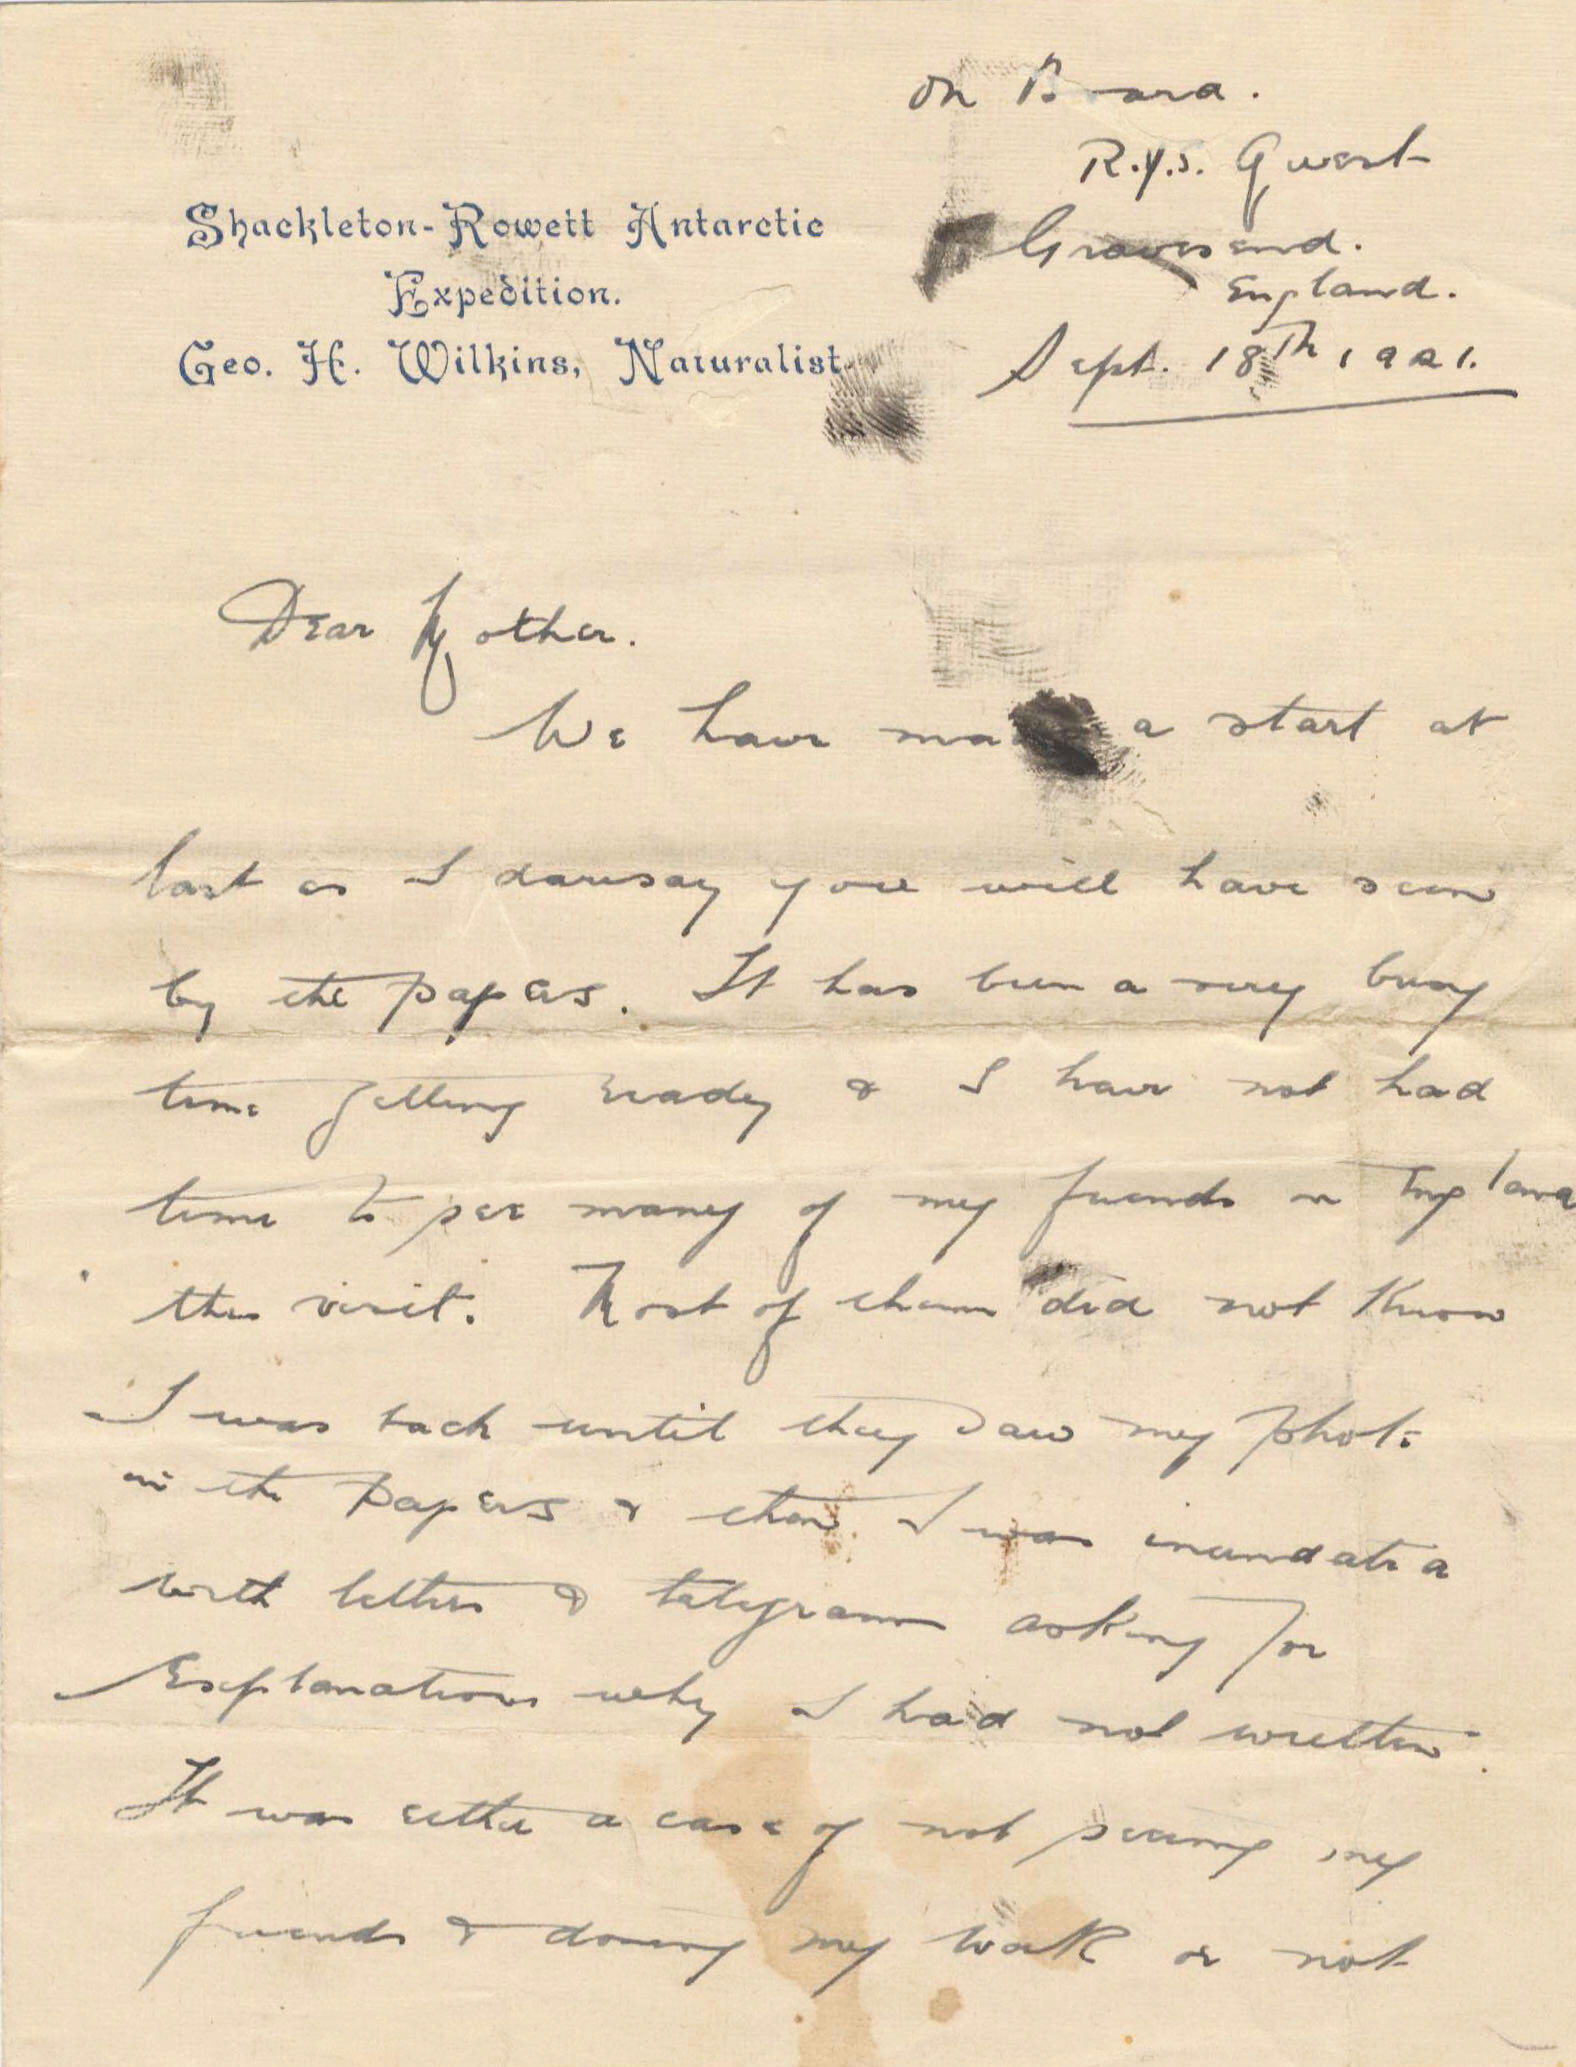 on Board.
R.Y.S. Quest
Gravesend.
England.
Sept. 18th 1921.
Shackleton-Rowett Antarctic
Expedition.
Geo. H. Wilkins, Naturalist
Dear Mother.
We have ma a start at
last as I daresay you will have seen
by the papers. It has been a very busy
time getting ready & I have not had
time to see many of my friends in England
this visit. Most of them did not know
I was back until they saw my photo
in the papers & then I was inundated
with letters & telegrams asking for
explanations why I had not written.
It was either a case of not seeing my
friends & doing my work or not